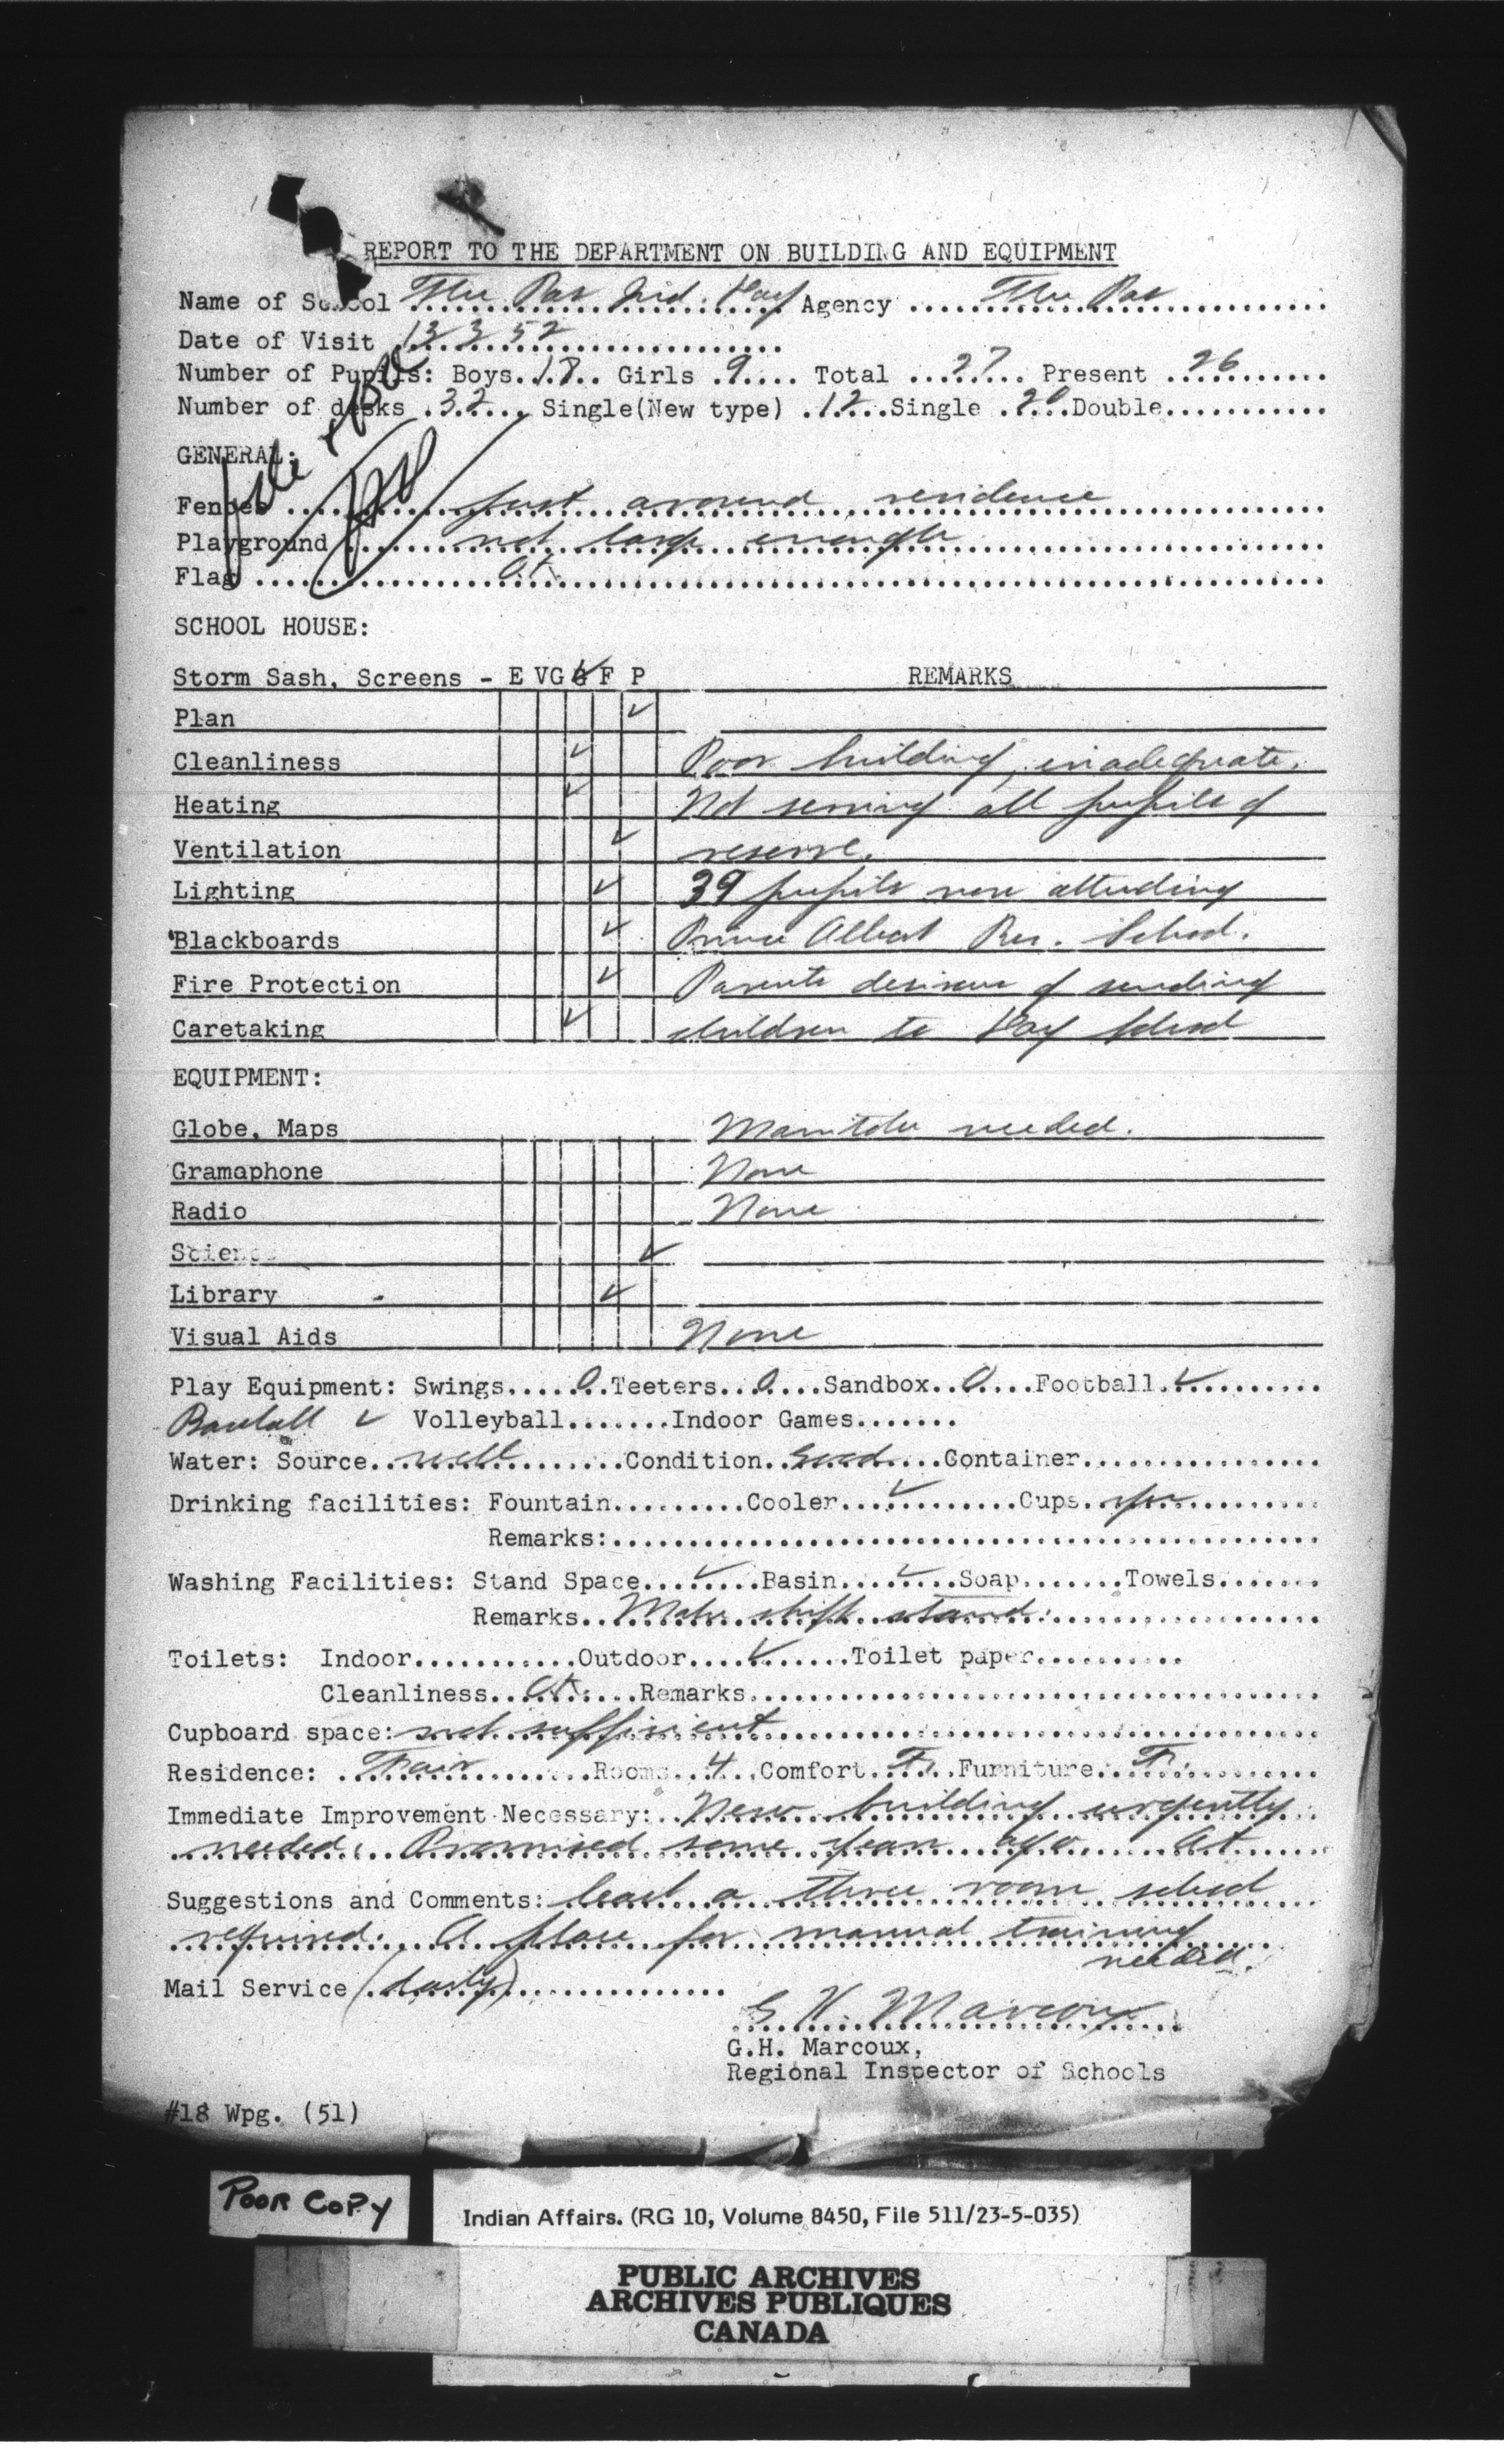 REPORT TO THE DEPARTMENT ON BUILDING AND EQUIPMENT
Name of School The Pas Ind. Day Agency The Pas
Date of Visit 13 3 52
Number of Pupils: Boys 18 Girls 9 Total 27 Present 26
Number of desks 32 Single(New type) 12 Single 20 Double
GENERAL:
Fences just around residence
Playground not large enough
Flag OK
SCHOOL HOUSE:
Storm Sash, Screens - E VG G ✓ F P REMARKS
Plan ✓
Cleanliness ✓ Poor building, inadequate.
Heating ✓ Not serving all pupils of
Ventilation ✓ reserve.
Lighting ✓ 39 pupils now attending
Blackboards ✓ Prince Albert Res. School.
Fire Protection ✓ Parents desirous of sending
Caretaking ✓ children to Day School
EQUIPMENT:
Globe, Maps Manitoba needed.
Gramaphone None
Radio None
Science ✓
Library ✓
Visual Aids None
Play Equipment: Swings 0 Teeters 0 Sandbox 0 Football ✓
Baseball ✓ Volleyball Indoor Games
Water: Source well Condition Good Container
Drinking facilities: Fountain Cooler ✓ Cups yes
Remarks:
Washing Facilities: Stand Space ✓ Basin ✓ Soap Towels
Remarks Make shift stand.
Toilets: Indoor Outdoor ✓ Toilet paper
Cleanliness OK Remarks
Cupboard space: not sufficient
Residence: Fair Rooms 4 Comfort F. Furniture F.
Immediate Improvement Necessary: New building urgently
needed. Promised some years ago. At
Suggestions and Comments: least a three room school
required. A place for manual training
needed.
Mail Service (daily)
G H. Marcoux
G.H. Marcoux,
Regional Inspector of Schools
#18 Wpg. (51)
POOR COPY
Indian Affairs. (RG 10, Volume 8450, File 511/23-5-035)
PUBLIC ARCHIVES
ARCHIVES PUBLIQUES
CANADA